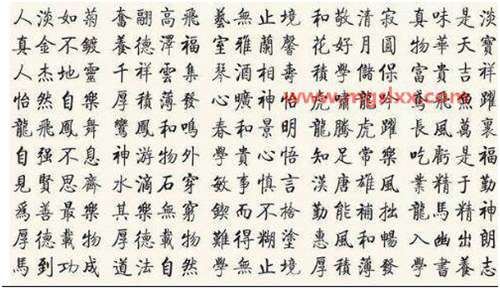 人淡如菊 奮翮高飛 藝無止境 和敬清寂 真味是淡
真金不鍍 養德澤福 室雅蘭馨 花好月圓 物華天寶
人杰地靈 千祥雲集 琴酒相壽 積學儲保 富貴吉祥
怡然自樂 厚積薄發 心曠神怡 虎嘯龍 鳶飛魚躍
龍飛鳳舞 鸞鳳和鳴 春和景明 龍騰虎躍 長風萬裏
自强不息 神游物外 學貴心悟 知足常樂 吃虧是福
見賢思齊 水滴石穿 敏事慎言 漢唐雄風 業精于勤
爲善最樂 其樂無窮 鍥而不捨 勤能補拙 龍馬精神
厚德載物 厚德載物 難得糊塗 惠風和暢 入幽出朗
馬到功成 道法自然 學無止境 厚積薄發 學書養志
www.mgslxx.com